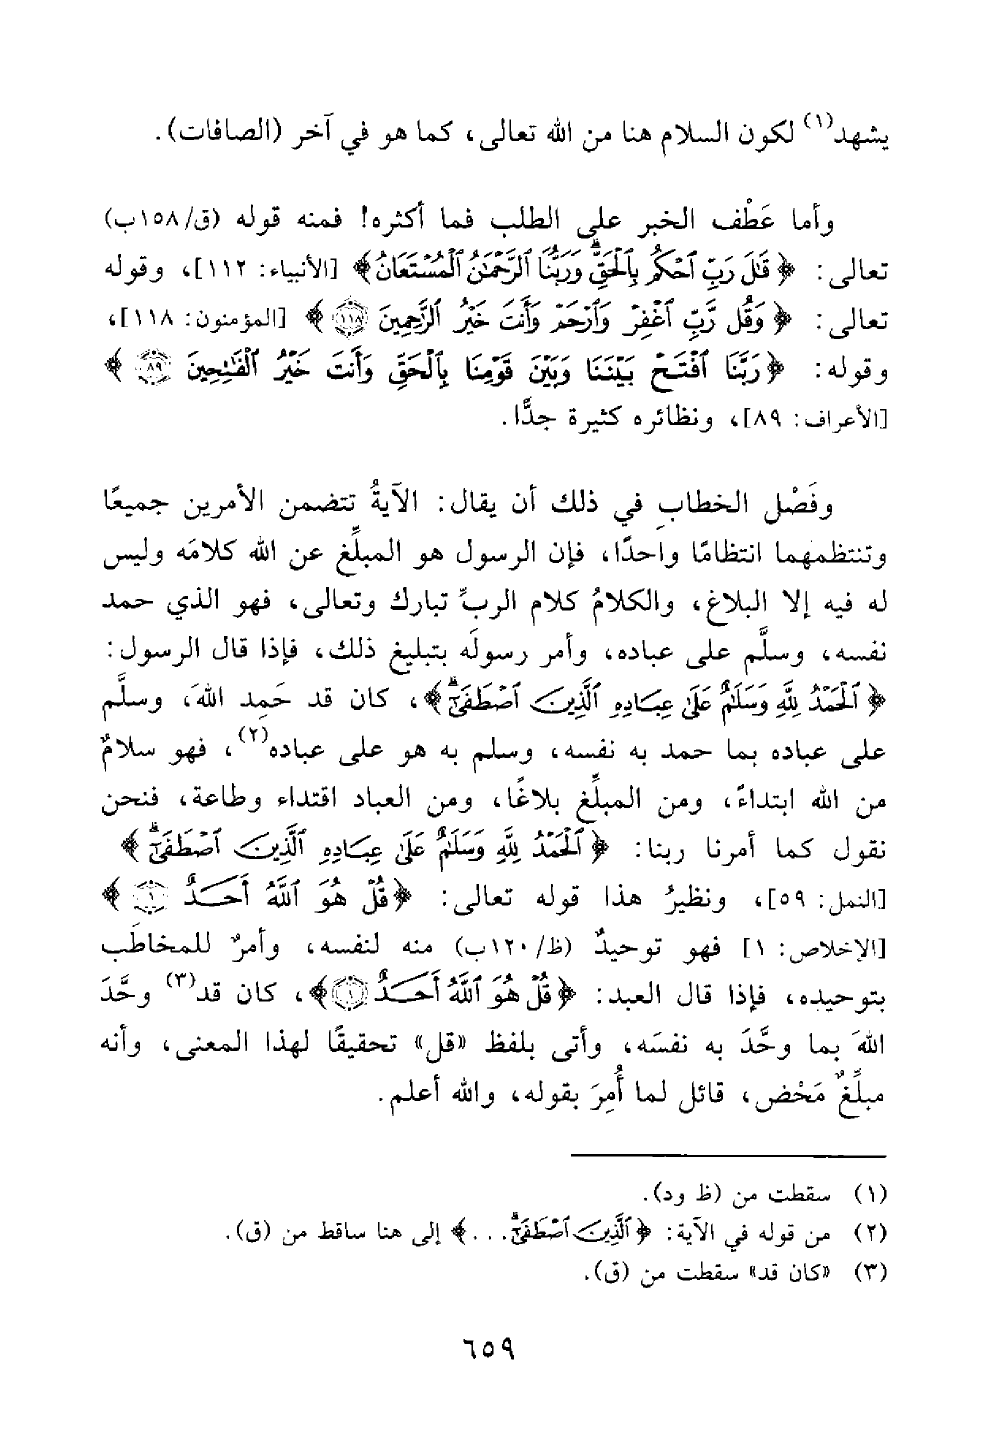 يشهد(١) لكون السلام هنا من الله تعالى، كما هو في آخر (الصافات).
وأما عَطْف الخبر على الطلب فما أكثره! فمنه قوله (ق/١٥٨ب)
تعالى: ﴿قَٰلَ رَبِّ ٱحْكُم بِٱلْحَقِّ ۗ وَرَبُّنَا ٱلرَّحْمَٰنُ ٱلْمُسْتَعَانُ﴾ [الأنبياء: ١١٢]، وقوله
تعالى: ﴿وَقُل رَّبِّ ٱغْفِرْ وَٱرْحَمْ وَأَنتَ خَيْرُ ٱلرَّٰحِمِينَ ١١٨﴾ [المؤمنون: ١١٨]،
وقوله: ﴿رَبَّنَا ٱفْتَحْ بَيْنَنَا وَبَيْنَ قَوْمِنَا بِٱلْحَقِّ وَأَنتَ خَيْرُ ٱلْفَٰتِحِينَ ٨٩﴾
[الأعراف: ٨٩]، ونظائره كثيرة جدًّا.
وفَصْل الخطابِ في ذلك أن يقال: الآيةُ تتضمن الأمرين جميعًا
وتنتظمهما انتظامًا واحدًا، فإن الرسول هو المبلِّغ عن الله كلامَه وليس
له فيه إلا البلاغ، والكلامُ كلام الربِّ تبارك وتعالى، فهو الذي حمد
نفسه، وسلَّم على عباده، وأمر رسولَه بتبليغ ذلك، فإذا قال الرسول:
﴿ٱلْحَمْدُ لِلَّهِ وَسَلَٰمٌ عَلَىٰ عِبَادِهِ ٱلَّذِينَ ٱصْطَفَىٰٓ ۗ﴾، كان قد حَمِد اللهَ، وسلَّم
على عباده بما حمد به نفسه، وسلم به هو على عباده(٢)، فهو سلامٌ
من الله ابتداءً، ومن المبلِّغ بلاغًا، ومن العباد اقتداء وطاعة، فنحن
نقول كما أمرنا ربنا: ﴿ٱلْحَمْدُ لِلَّهِ وَسَلَٰمٌ عَلَىٰ عِبَادِهِ ٱلَّذِينَ ٱصْطَفَىٰٓ ۗ﴾
[النمل: ٥٩]، ونظيرُ هذا قوله تعالى: ﴿قُلْ هُوَ ٱللَّهُ أَحَدٌ ١﴾
[الإخلاص: ١] فهو توحيدٌ (ظ/١٢٠ب) منه لنفسه، وأمرٌ للمخاطَب
بتوحيده، فإذا قال العبد: ﴿قُلْ هُوَ ٱللَّهُ أَحَدٌ ١﴾، كان قد(٣) وحَّدَ
اللهَ بما وحَّدَ به نفسَه، وأتى بلفظ «قل» تحقيقًا لهذا المعنى، وأنه
مبلِّغٌ مَحْض، قائل لما أُمِرَ بقوله، والله أعلم.
(١) سقطت من (ظ ود).
(٢) من قوله في الآية: ﴿ٱلَّذِينَ ٱصْطَفَىٰٓ ۗ...﴾ إلى هنا ساقط من (ق).
(٣) «كان قد» سقطت من (ق).
٦٥٩